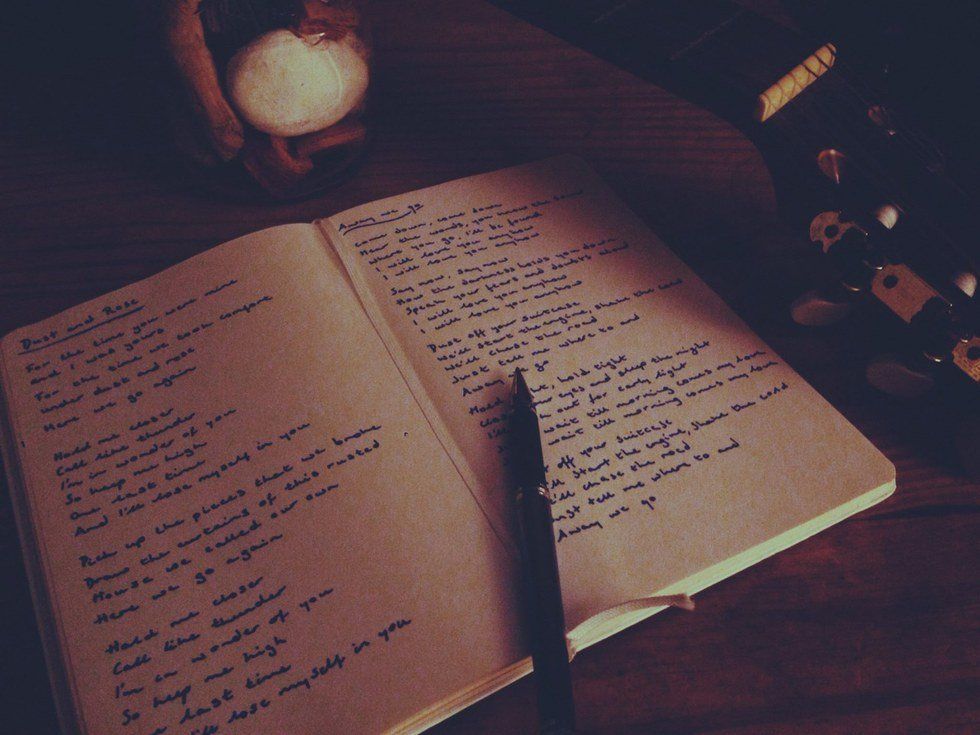 Dust and Rose
For the time you were mine
And I was yours
For the time we took comfore
under dust and rose
Here we go again
Hold me closer
Call like thunder
I'm in wonder of you
So keep me high
One last time
And I'll lose myself in you
Pick up the pieces that we broke
Draw the curtains of this rusted
House we called our own
Here we go again
Hold me closer
Call like thunder
I'm in wonder of you
So keep me high
last time
lose myself in you
Away we go
Come down, come down
Hear the words, you know the
Where you go, I'll be found
I will love you anyhow
I will love you anyhow
Say now, say now
How the darkness holds you down
Speak your fears and doubts aloud
I will love you anyhow
I will love you anyhow
Dust off your suitcase
We'll start the engine, shake the cold
We'll chase the road
Just tell me where to and
Away go
Hold, hold tight
your eyes and sleep the night
out for early light
wait till morning comes my love
wait till morning comes my love
off your suitcase
start the engine, shake the cold
chase the road
tell me where to and
Away we go